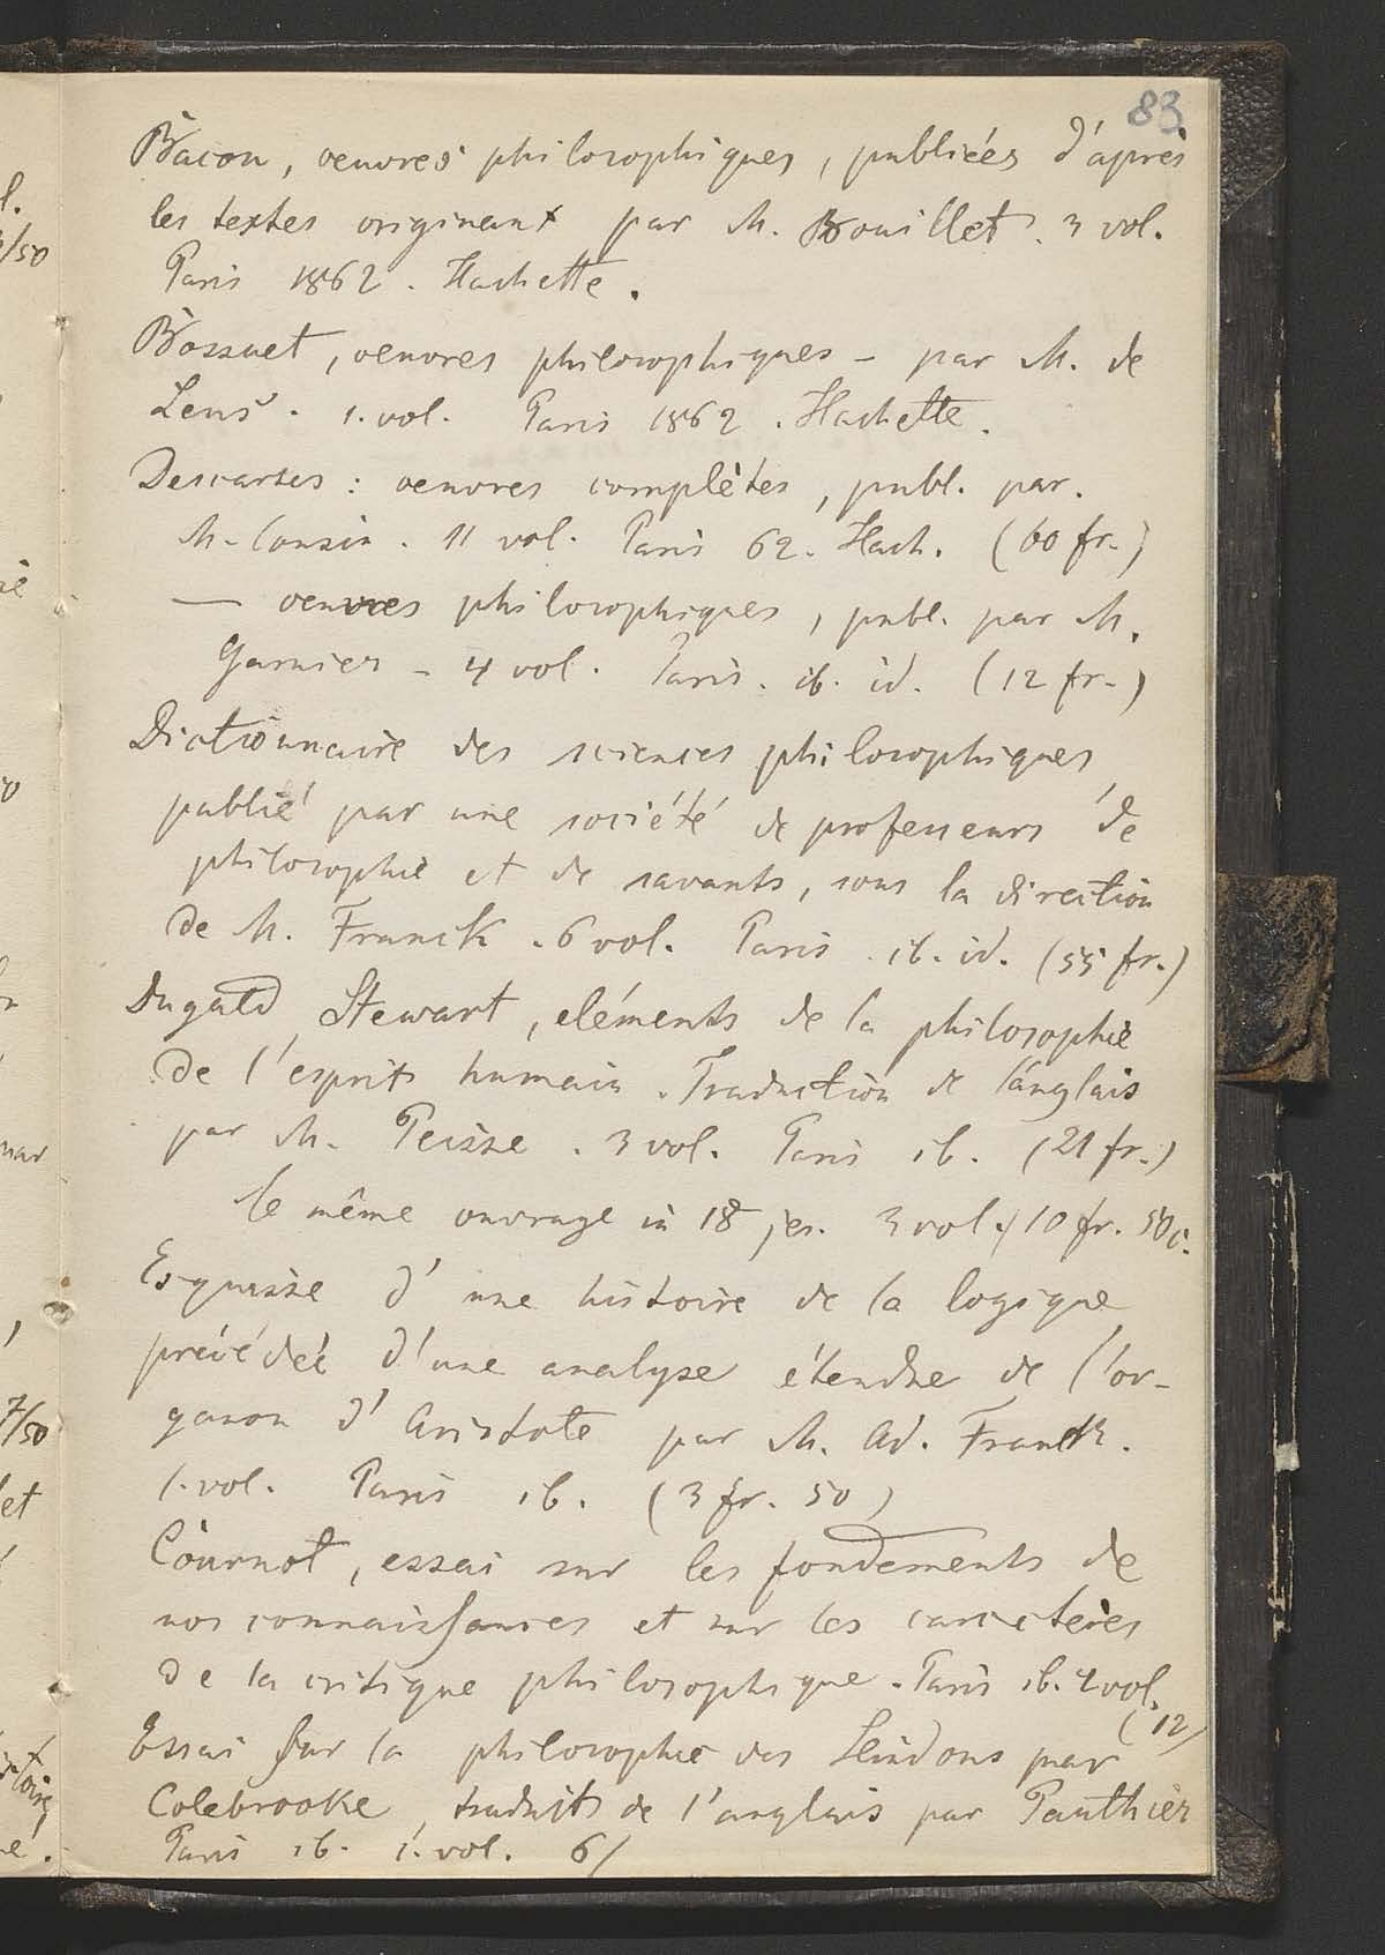 83
Bacon, oeuvres philosophiques, publiées d'après
les textes originaux par M. Bouillet. 3 vol.
Paris 1862. Hachette.
Bossuet, oeuvres philosophiques – par M. de
Lens. 1. vol. Paris 1862. Hachette.
Descartes: oeuvres complètes, publ. par.
M. Cousin. 11 vol. Paris 62. Hach. (60 fr.)
— oeuvres philosophiques, publ. par M.
Garnier – 4 vol. Paris. ib. id. (12 fr.)
Dictionnaire des sciences philosophiques
publié par une société de professeurs de
philosophie et de savants, sous la direction
de M. Franck. 6 vol. Paris. ib. id. (55 fr.)
Dugald Stewart, eléments de la philosophie
de l'esprit humain. Traduction de l'anglais
par M. Peisse. 3 vol. Paris ib. (21 fr.)
le même ouvrage in 18 jes. 3 vol. / 10 fr. 50 c.
Esquisse d'une histoire de la logique
précédée d'une analyse étendue de l'or-
ganon d'Aristote par M. Ad. Franck.
1. vol. Paris ib. (3 fr. 50)
Cournot, essai sur les fondements de
nos connaissances et sur les caractères
de la critique philosophique. Paris ib. 2 vol.
(12)
Essai sur la philosophie des Hindous par
Colebrooke, traduits de l'anglais par Pauthier
Paris ib. 1. vol. 6/